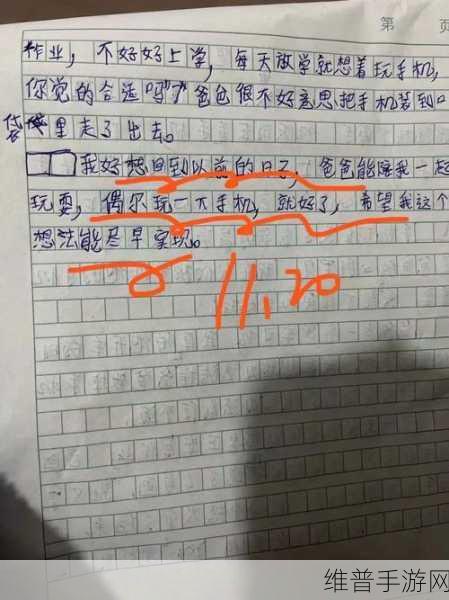 第 页
作业，不好好上学，每天放学就想着玩手机，
你觉的合适吗？”爸爸很不好意思把手机装到口
袋里走了出去。
我好想回到以前的日子，爸爸能陪我一起
玩耍，偶尔玩一下手机，就好了，希望我这个
想法能尽早实现。
11.20
维普手游网